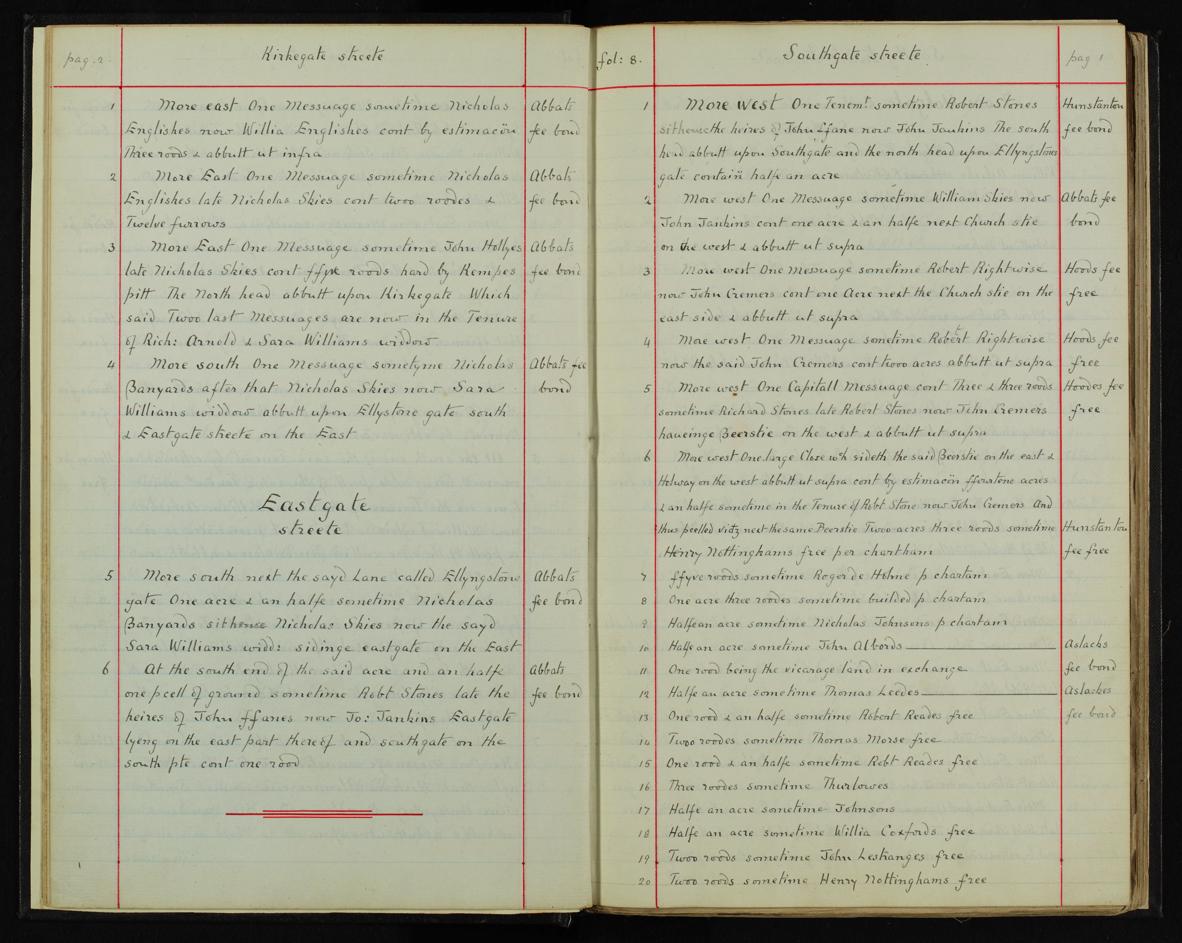 pag. 2. Kirkegate streete
1 More east One Messuage sometime Nicholas Abbats
Englishes now Willia Englishes cont by estimacion fee bond
Three roods & abbutt ut infra
2 More East One Messuage sometime Nicholas Abbats
Englishes late Nicholas Skies cont twoo roodes & fee bond
Twelve furrows
3 More East One Messuage sometime John Hollyes Abbats
late Nicholas Skies cont ffyve roods hard by Kempes fee bond
pitt The North head abbutt upon Kirkegate Which
said Twoo last Messuages are now in the Tenure
of Rich: Arnold & Sara Williams widdow
4 More south One Messuage sometyme Nicholas Abbats fee
Banyards after that Nicholas Skies now Sara bond
Williams widdow abbutt upon Ellystone gate south
& Eastgate streete on the East
Eastgate
streete
5 More south next the sayd Lane called Ellyngston Abbats
gate One acre & an halfe sometime Nicholas fee bond
Banyards sithence Nicholas Skies now the sayd
Sara Williams widd: sidinge eastgate on the East
6 At the south end of the said acre and an halfe Abbats
one pcell of ground sometime Robt Stones late the fee bond
heires of John ffanes now Jo: Jankins Eastgate
lyeng on the east part thereof and southgate on the
south pte cont one rood
fol: 8. Southgate streete pag 1
1 More West One Tenemt. sometime Robert Stones Hunstanton
sithence the heires of John ffane now John Jankins The south fee bond
head abbutt upon Southgate and the north head upon Ellyngstones
gate contain half an acre
2 More west One Messuage sometime William Skies now Abbats fee
John Jankins cont one acre & an halfe next Church stie bond
on the west & abbutt ut supra
3 More west One Messuage sometime Robert Rightwise Hoods fee
now John Cremers cont one Acre next the Church stie on the free
east side & abbutt ut supra
4 More west One Messuage sometime Robert Rightwise Hoods fee
now the said John Cremers cont twoo acres abbutt ut supra free
5 More west One Capitall Messuage cont Three & three roods Hoodes fee
sometime Richard Stones late Robert Stones now John Cremers free
haueinge Beerstie on the west & abbutt ut supra
6 More west One large Close wch sideth the said Beerstie on the east &
Holway on the west abbutt ut supra cont by estimacion acres
& an halfe sometime in the Tenure of Robt Stone now John Cremers And
thus pcelled vidz next the same Beerstie Twoo acres three roods sometime Hunstanton
Henry Nottinghams free per chartham fee free
7 ffyve roods sometime Roger de Holme p chartam
8 One acre three roodes sometime builded p chartam
9 Halfe an acre sometime Nicholas Johnsons p chartam
10 Halfe an acre sometime John Albords Aslacks
11 One rood being the vicarage land in exchange fee bond
12 Halfe an acre sometime Thomas Leedes Aslackes
13 One rood & an halfe sometime Robert Reades free fee bond
14 Twoo roodes sometime Thomas Morse free
15 One rood & an halfe sometime Robt Reades free
16 Three roodes sometime Thurlowes
17 Halfe an acre sometime Johnsons
18 Halfe an acre sometime Willia Coxfords free
19 Twoo roods sometime John Lestranges free
20 Twoo roods sometime Henry Nottinghams free